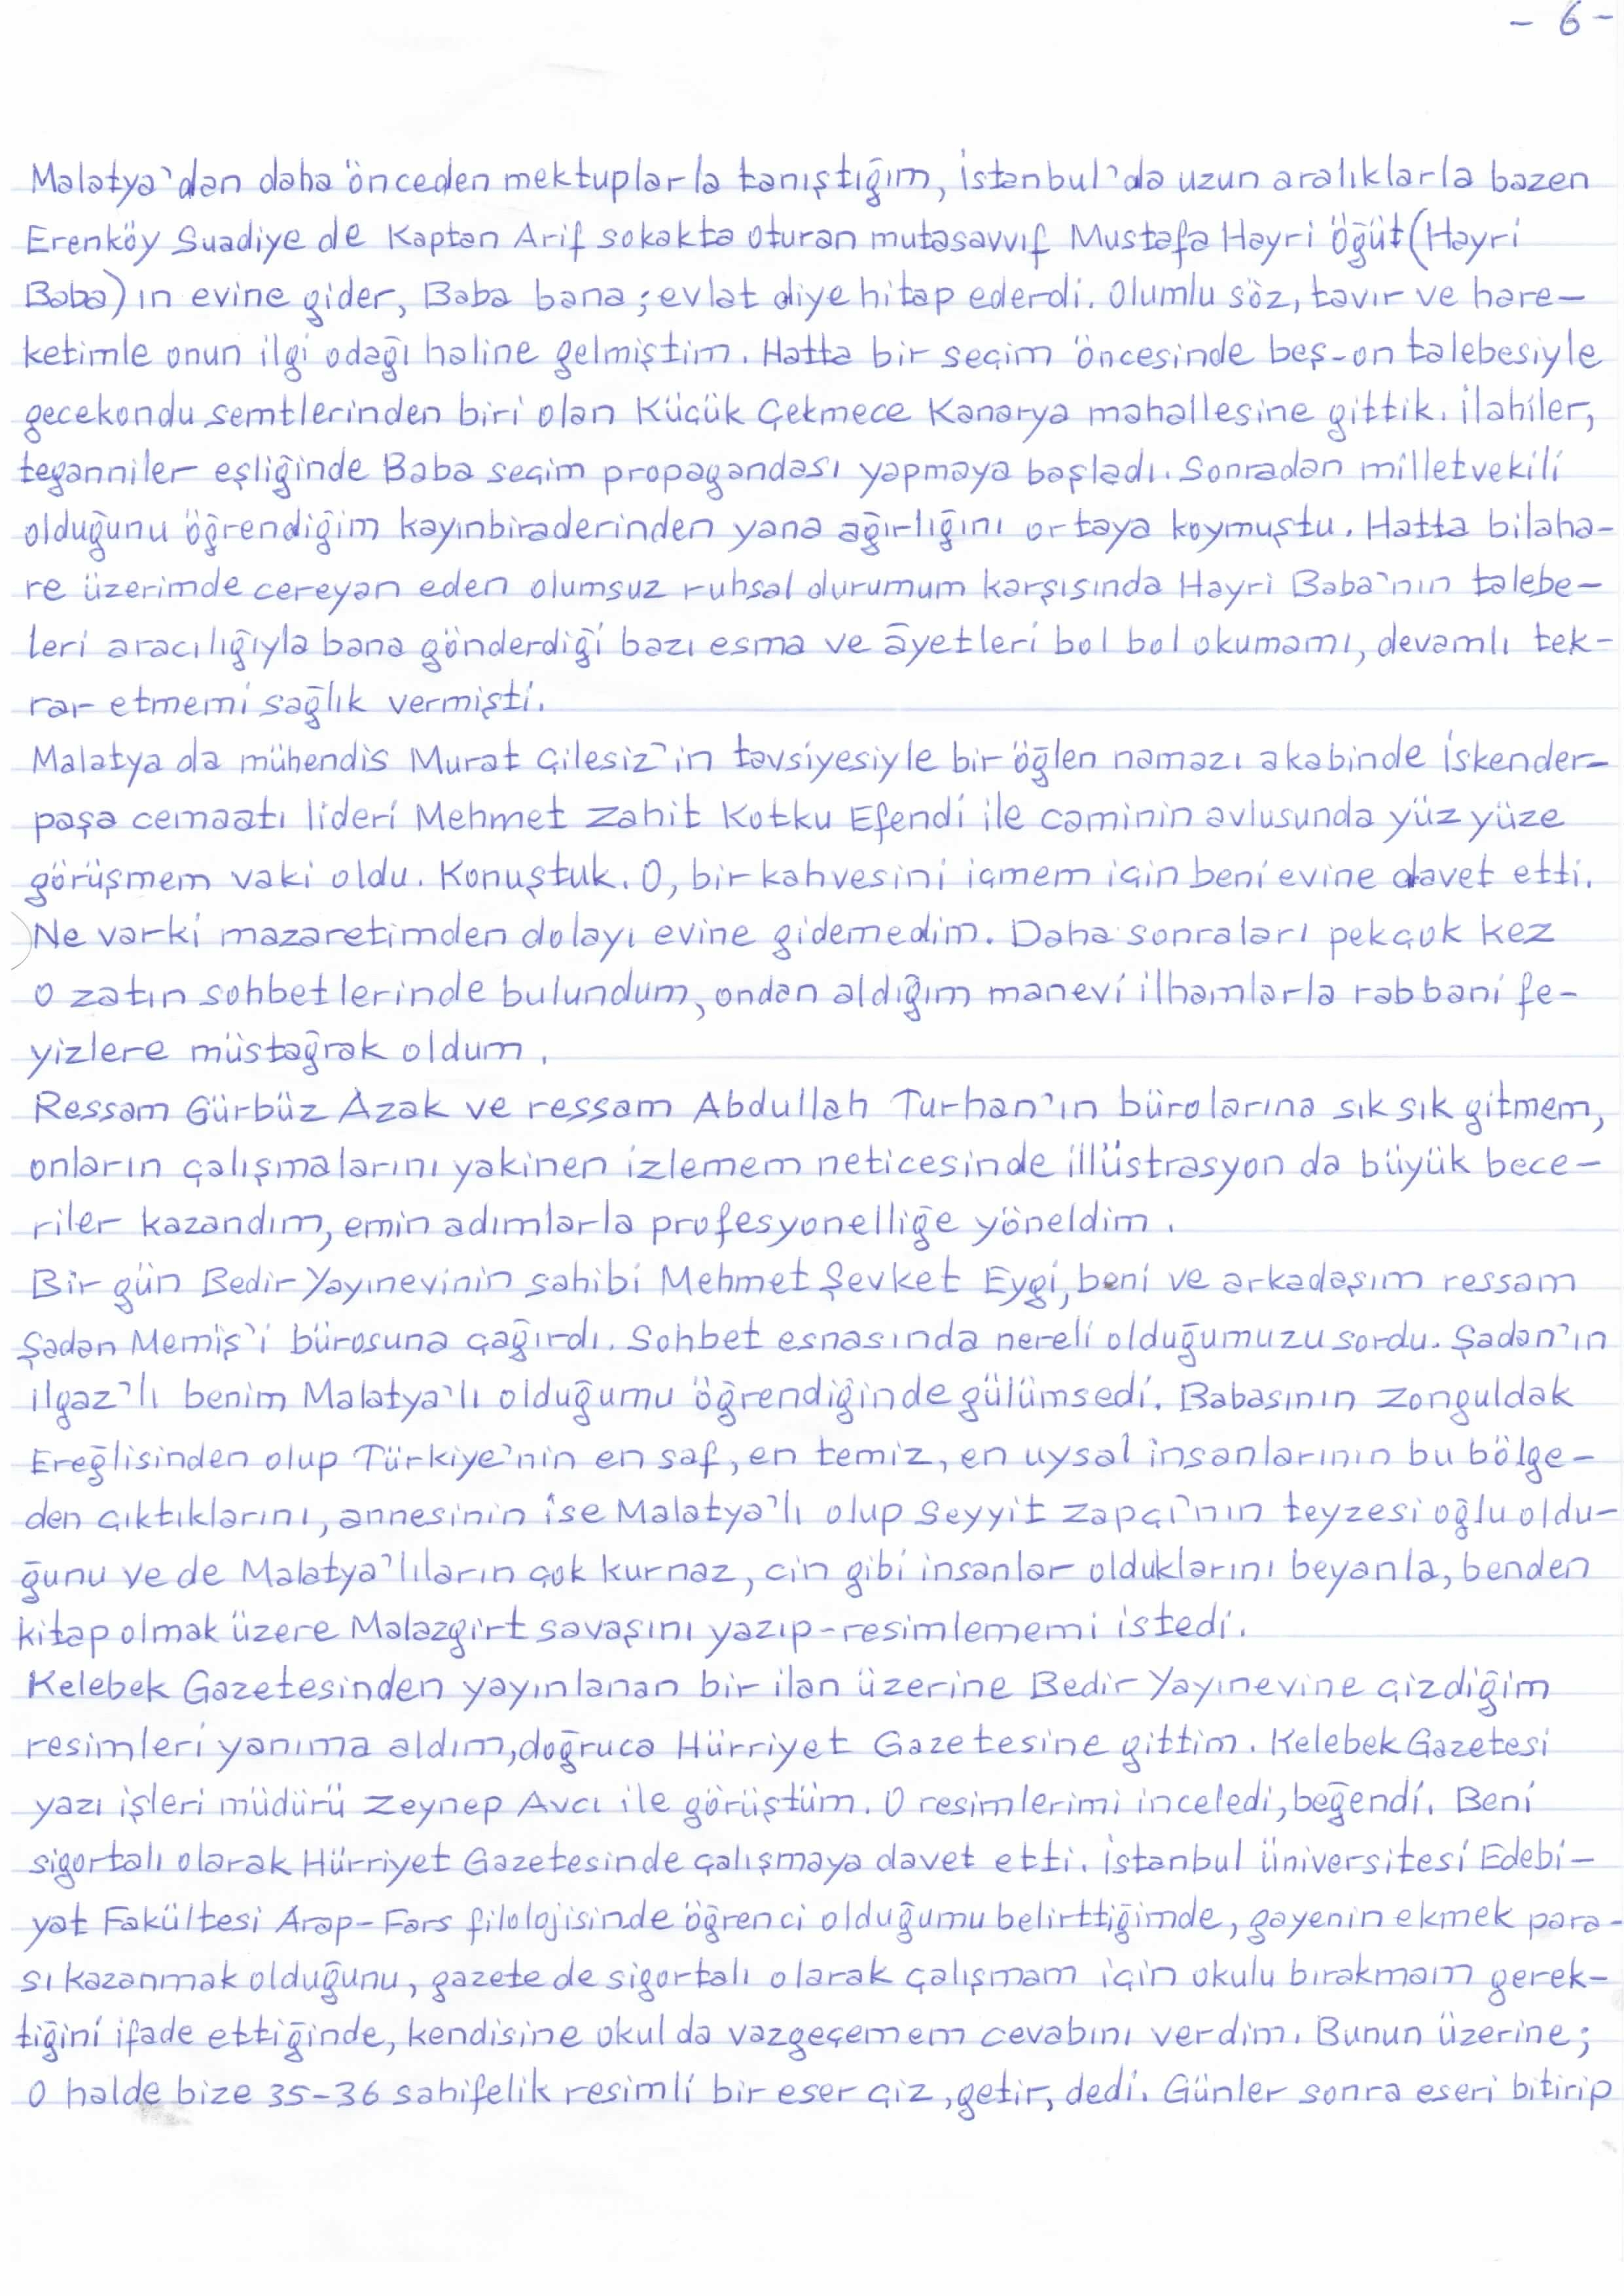 - 6 -
Malatya'dan daha önceden mektuplarla tanıştığım, İstanbul'da uzun aralıklarla bazen
Erenköy Suadiye de Kaptan Arif sokakta oturan mutasavvıf Mustafa Hayri Öğüt (Hayri
Baba)ın evine gider, Baba bana ; evlat diye hitap ederdi. Olumlu söz, tavır ve hare-
ketimle onun ilgi odağı haline gelmiştim. Hatta bir seçim öncesinde beş-on talebesiyle
gecekondu semtlerinden biri olan Küçük Çekmece Kanarya mahallesine gittik. İlahiler,
teganniler eşliğinde Baba seçim propagandası yapmaya başladı. Sonradan milletvekili
olduğunu öğrendiğim kayınbiraderinden yana ağırlığını ortaya koymuştu. Hatta bilaha-
re üzerimde cereyan eden olumsuz ruhsal durumum karşısında Hayri Baba'nın talebe-
leri aracılığıyla bana gönderdiği bazı esma ve âyetleri bol bol okumamı, devamlı tek-
rar etmemi sağlık vermişti.
Malatya da mühendis Murat Çilesiz'in tavsiyesiyle bir öğlen namazı akabinde İskender-
paşa cemaatı lideri Mehmet Zahit Kotku Efendi ile caminin avlusunda yüz yüze
görüşmem vaki oldu. Konuştuk. O, bir kahvesini içmem için beni evine davet etti.
Ne varki mazaretimden dolayı evine gidemedim. Daha sonraları pekçok kez
o zatın sohbetlerinde bulundum, ondan aldığım manevi ilhamlarla rabbani fe-
yizlere müstağrak oldum.
Ressam Gürbüz Azak ve ressam Abdullah Turhan'ın bürolarına sık sık gitmem,
onların çalışmalarını yakinen izlemem neticesinde illüstrasyon da büyük bece-
riler kazandım, emin adımlarla profesyonelliğe yöneldim.
Bir gün Bedir Yayınevinin sahibi Mehmet Şevket Eygi, beni ve arkadaşım ressam
Şadan Memiş'i bürosuna çağırdı. Sohbet esnasında nereli olduğumuzu sordu. Şadan'ın
ilgaz'lı benim Malatya'lı olduğumu öğrendiğinde gülümsedi. Babasının Zonguldak
Ereğlisinden olup Türkiye'nin en saf, en temiz, en uysal insanlarının bu bölge-
den çıktıklarını, annesinin ise Malatya'lı olup Seyyit Zapçı'nın teyzesi oğlu oldu-
ğunu ve de Malatya'lıların çok kurnaz, cin gibi insanlar olduklarını beyanla, benden
kitap olmak üzere Malazgirt savaşını yazıp-resimlememi istedi.
Kelebek Gazetesinden yayınlanan bir ilan üzerine Bedir Yayınevine çizdiğim
resimleri yanıma aldım, doğruca Hürriyet Gazetesine gittim. Kelebek Gazetesi
yazı işleri müdürü Zeynep Avcı ile görüştüm. O resimlerimi inceledi, beğendi. Beni
sigortalı olarak Hürriyet Gazetesinde çalışmaya davet etti. İstanbul Üniversitesi Edebi-
yat Fakültesi Arap-Fars filolojisinde öğrenci olduğumu belirttiğimde, gayenin ekmek para-
sı kazanmak olduğunu, gazete de sigortalı olarak çalışmam için okulu bırakmam gerek-
tiğini ifade ettiğinde, kendisine okul da vazgeçemem cevabını verdim. Bunun üzerine;
O halde bize 35-36 sahifelik resimli bir eser çiz, getir, dedi. Günler sonra eseri bitirip